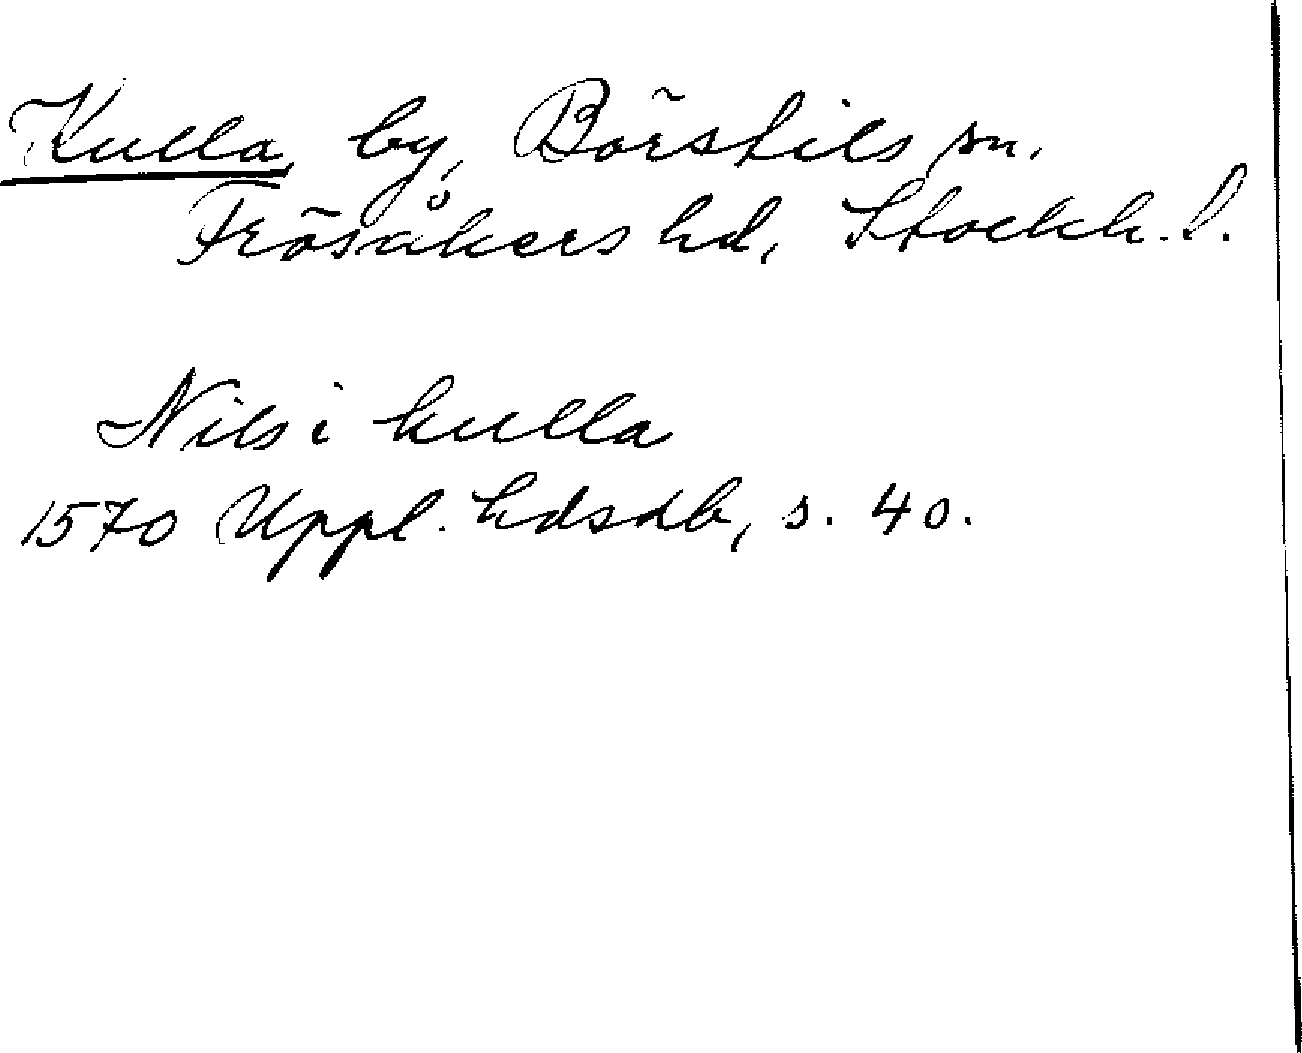 Kulla, by, Börstils sn.
Frösåkers hd, Stockh. l.
Nils i kulla
1570 Uppl. hdsdb, s. 40.